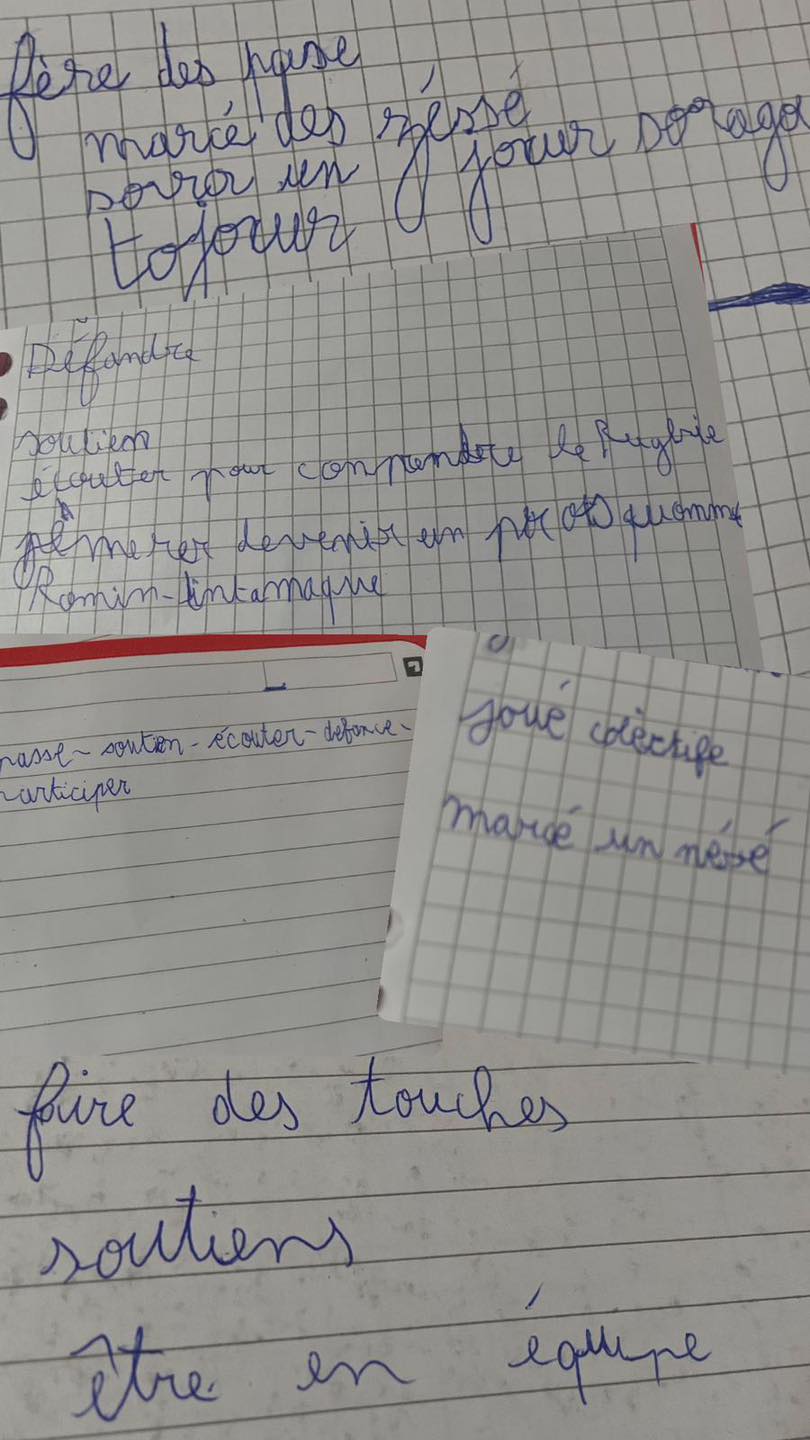 fère des passe
marcé des zéssé
sovoir un jouur soraga
tojouur
Défandre
soutien
écouter pour conprendre le Rugbie
devenir un quomme
Romin-tintamaque
passe - soution - écouter - defance -
participer
joué colèctife
marcé un
faire des touches
soutiens
être en équipe